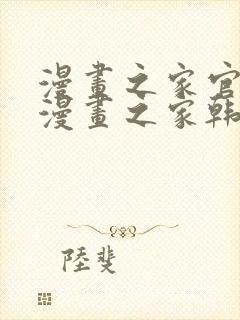 漫畫之家官
漫畫之家韩
陸斐